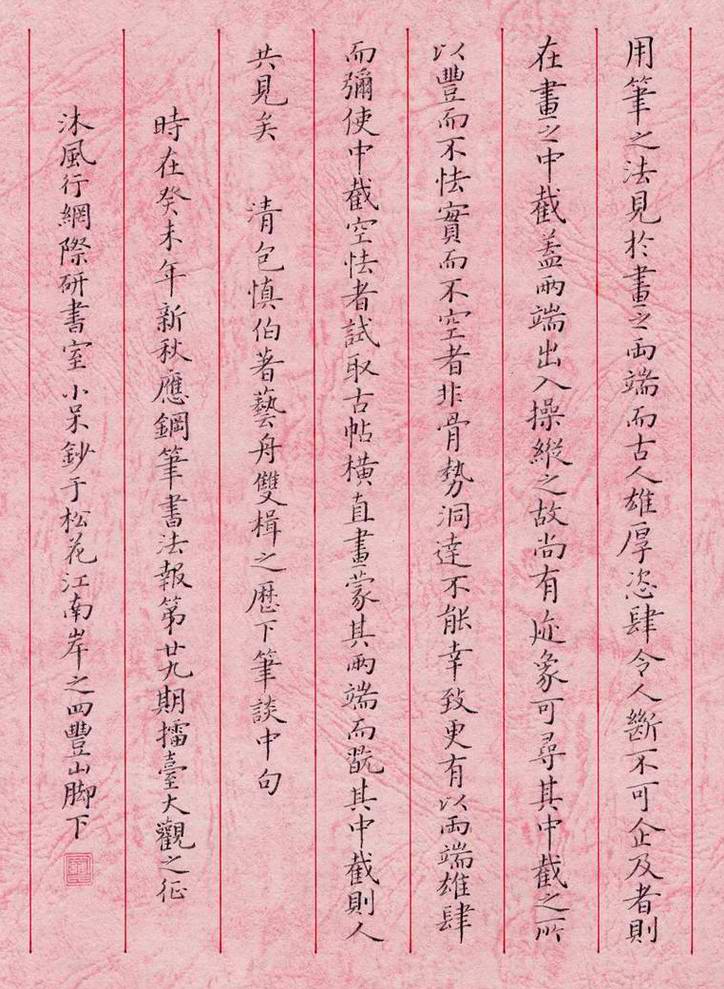 用筆之法見於畫之兩端而古人雄厚恣肆令人斷不可企及者則
在畫之中截蓋兩端出入操縱之故尚有迹象可尋其中截之所
以豐而不怯實而不空者非骨勢洞達不能幸致更有以兩端雄肆
而彌使中截空怯者試取古帖橫直畫蒙其兩端而翫其中截則人
共見矣 清包慎伯著藝舟雙楫之歷下筆談中句
時在癸未年新秋應鋼筆書法報第廿九期擂臺大觀之征
沐風行網際研書室小呆鈔于松花江南岸之四豐山腳下